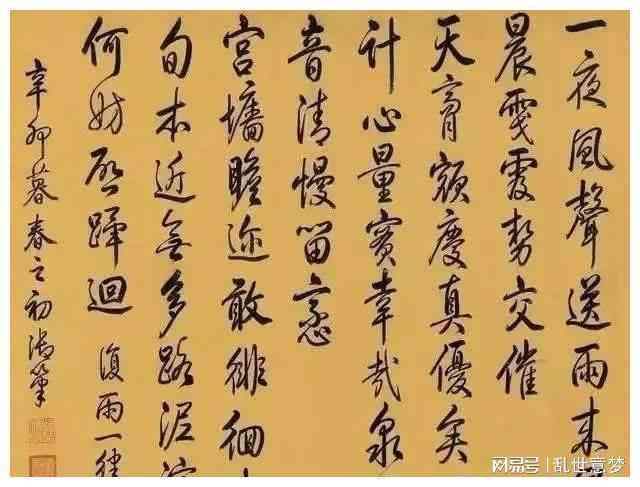 一夜風聲送雨來
晨霙霞勢交催
天膏額慶真優矣
計心量實幸哉泉
音清慢留意
宮墻瞻迩敢徘徊
旬本近無多路泥
何妨啓蹕迴
復雨一律
辛卯暮春之初御筆
网易号 | 乱世意梦